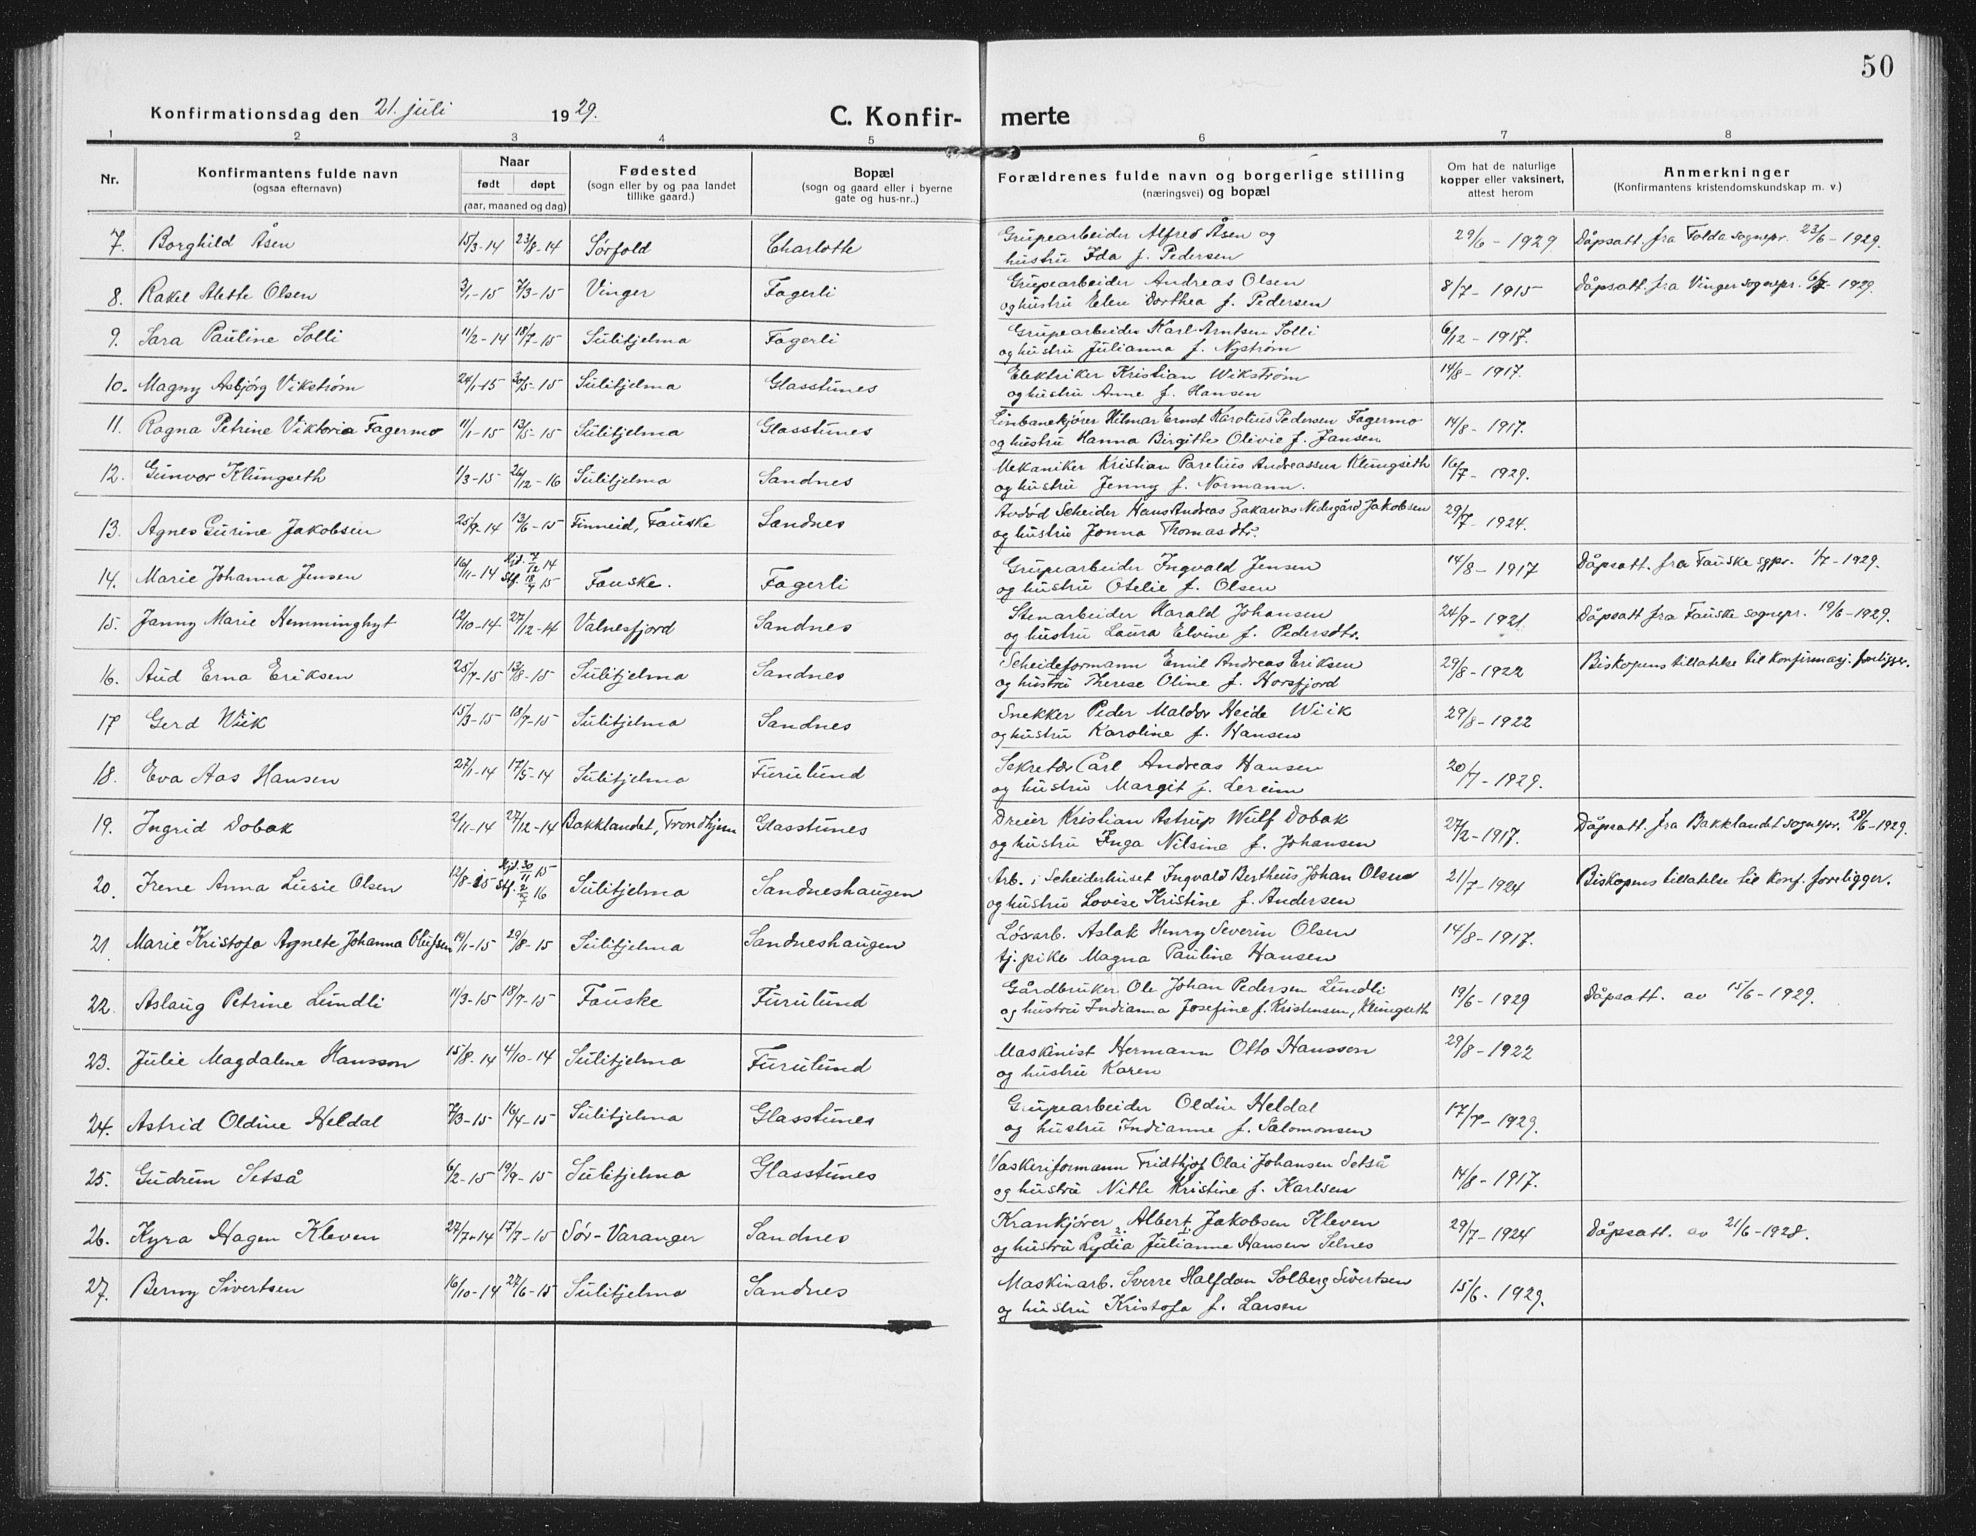 50
Konfirmationsdag den 21. juli 1929. C. Konfir- merte
1 2 3 4 5 6 7 8
Nr. Konfirmantens fulde navn (ogsaa efternavn) Naar født døpt (aar, maaned og dag) Fødested (sogn eller by og paa landet tillike gaard.) Bopæl (sogn og gaard eller i byerne gate og hus-nr..) Forældrenes fulde navn og borgerlige stilling (næringsvei) og bopæl Om hat de naturlige kopper eller vaksinert, attest herom Anmerkninger (Konfirmantens kristendomskundskap m. v.)
7. Borghild Åsen 15/3-14 23/8-14 Sørfold Charlotte Grupearbeider Alfred Åsen og 29/6-1929 Dåpsatt. fra Folda sognepr. 23/6-1929.
hustru Ida f. Pedersen
8. Rakel Alette Olsen 3/1-15 7/3-15 Vinger Fagerli Grupearbeider Andreas Olsen 8/7-1915 Dåpsatt. fra Vinger sognepr. 6/7-1929.
og hustru Elen Dorthea f. Pedersen
9. Sara Pauline Solli 11/2-14 18/7-15 Sulitjelma Fagerli Grupearbeider Karl Arntsen Solli 6/12-1917.
og hustru Julianna f. Nystrøm
10. Magny Asbjørg Vikstrøm 24/1-15 30/5-15 Sulitjelma Glasstunes Elektriker Kristian Wikstrøm 14/8-1917.
og hustru Anne f. Hansen
11. Ragna Petrine Viktoria Fagermo 11/1-15 13/5-15 Sulitjelma Glasstunes Linbanekjører Hilmar Ernst Karolius Pedersen Fagermo 14/8-1917.
og hustru Hanna Birgitte Olivie f. Jansen
12. Gunvor Klungseth 1/3-15 26/12-16 Sulitjelma Sandnes Mekaniker Kristian Parelius Andreassen Klungseth 16/7-1929.
og hustru Jenny f. Normann.
13. Agnes Gurine Jakobsen 25/9-14 13/6-15 Finneid, Fauske Sandnes Avdød Scheider Hans Andreas Zakarias Nedregård Jakobsen 29/7-1924.
og hustru Jonna Thomasdtr.
14. Marie Johanna Jensen 16/11-14 Hjd. 7/12 14 Fauske. Fagerli Grupearbeider Ingvald Jensen 14/8-1917 Dåpsatt. fra Fauske sgpr. 1/7-1929.
Stf. 18/4 15 og hustru Otelie f. Olsen
15. Janny Marie Hemminghyt 12/10-14 27/12-14 Valnesfjord Sandnes Stenarbeider Harald Johansen 24/9-1921 Dåpsatt fra Fauske sognepr. 19/6-1929.
og hustru Laura Elvine f. Pedersdtr.
16. Aud Erna Eriksen 25/7-15 13/8-15 Sulitjelma Sandnes Scheideformann Emil Andreas Eriksen 29/8-1922 Biskopens tillatelse til konfirmasj. foreligger.
og hustru Therese Oline f. Horsfjord
17 Gerd Wiik 15/3-15 18/7-15 Sulitjelma Sandnes Snekker Peder Maldor Heide Wiik 29/8-1922
og hustru Karoline f. Hansen
18. Eva Aas Hansen 27/1-14 17/5-14 Sulitjelma Furulund Sekretær Carl Andreas Hansen 20/7-1929.
og hustru Margit f. Lereim
19. Ingrid Dobak 2/11-14 27/12-14 Bakklandet, Trondhjem Glasstunes Dreier Kristian Astrup Wulf Dobak 27/2-1917. Dåpsatt. fra Bakklandet sognepr. 28/6-1929.
og hustru Inga Nilsine f. Johansen
20. Irene Anna Lusie Olsen 12/8-15 Hjd. 30/11 15 Sulitjelma Sandneshaugen Arb. i Scheiderhuset Ingvald Bertheus Johan Olsen 21/7-1924 Biskopens tillatelse til konf. foreligger.
Stf. 2/7 16 og hustru Lovise Kristine f. Andersen
21. Marie Kristofa Agnete Johanna Olufsen 19/1-15 29/8-15 Sulitjelma Sandneshaugen Løsarb. Aslak Henry Severin Olsen 14/8-1917.
tj. pike Magna Pauline Hansen
22. Aslaug Petrine Lundli 11/3-15 18/7-15 Fauske Furulund Gårdbruker Ole Johan Pedersen Lundli 19/6-1929 Dåpsatt. av 15/6-1929.
og hustru Indianna Josefine f. Kristensen, Klungseth
23. Julie Magdalene Hansson 15/8-14 4/10-14 Sulitjelma Furulund Maskinist Hermann Otto Hansson 29/8-1922
og hustru Karen
24. Astrid Oldine Heldal 7/3-15 16/4-15 Sulitjelma Glasstunes Grupearbeider Oldin Heldal 17/7-1929.
og hustru Indianne f. Salomonsen
25. Gudrun Setså 6/2-15 19/9-15 Sulitjelma Glasstunes Vaskeriformann Fridthjof Olai Johansen Setså 14/8-1917.
og hustru Nitte Kristine f. Karlsen
26. Kyra Hagen Kleven 27/7-14 17/7-15 Sør-Varanger Sandnes Krankjører Albert Jakobsen Kleven 29/7-1924 Dåpsatt. av 21/6-1928.
og hustru Lydia Julianne Hansen Selnes
27. Berny Sivertsen 16/10-14 27/6-15 Sulitjelma Sandnes Maskinarb. Sverre Halfdan Solberg Sivertsen 15/6-1929.
og hustru Kristofa f. Larsen